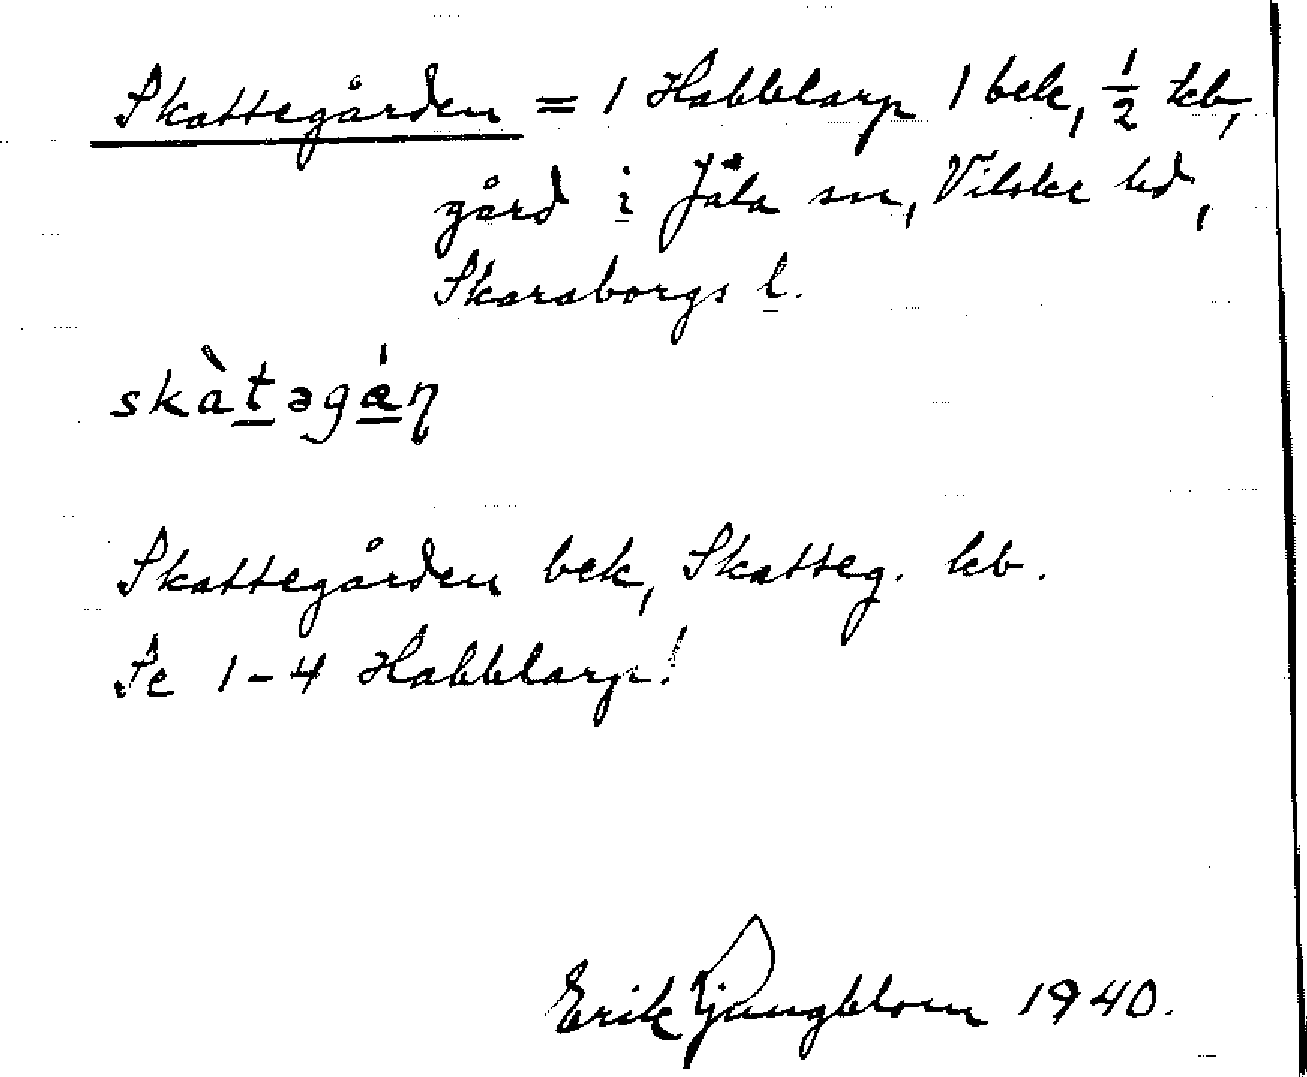 Skattegården = 1 Habblarp 1 bek, ½ kb,
gård i Jäla sn, Vilske hd,
Skaraborgs l.
skàtəgán
Skattegården bek, Skatteg. kb.
Se 1-4 Habblarp!
Erik Ljungblom 1940.